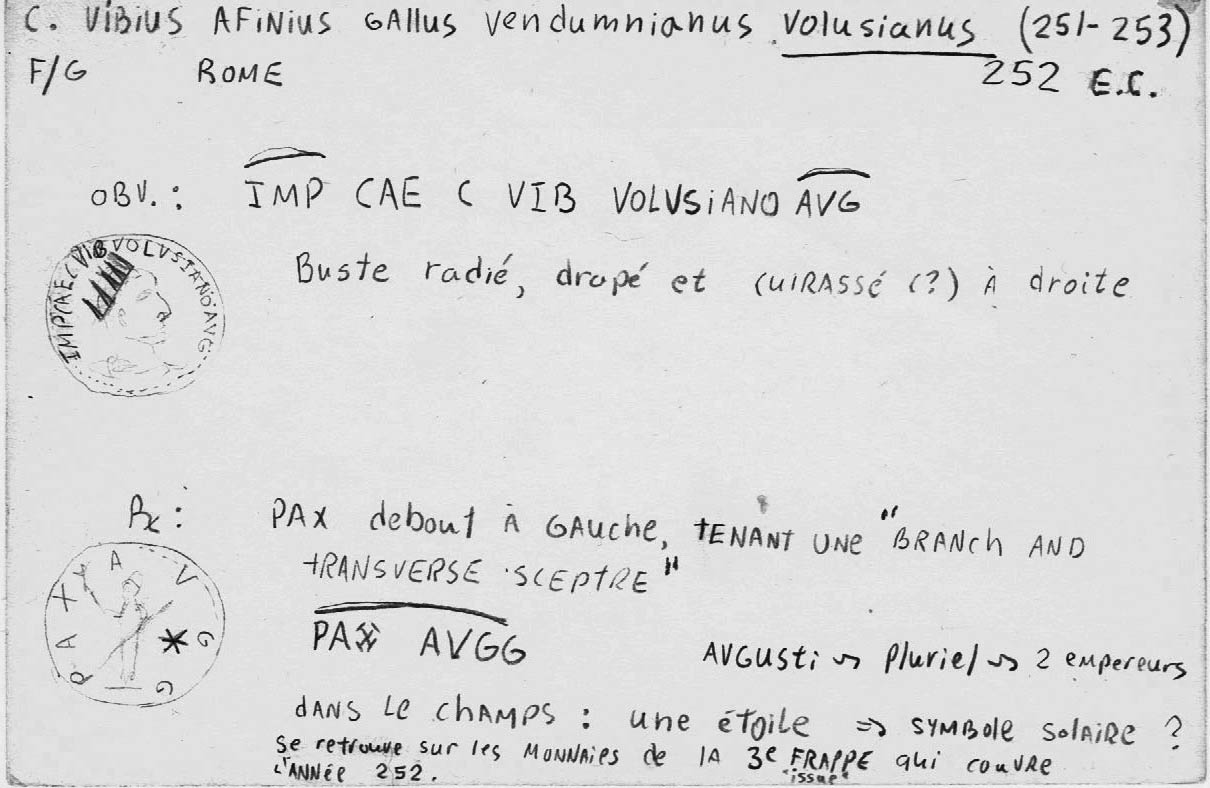 C. VIBIUS AFINIUS GALLUS VENDUMNIANUS VOLUSIANUS (251-253)
F/G ROME 252 E.C.
OBV.: IMP CAE C VIB VOLUSIANO AVG
IMP CAE C VIB VOLVSIANO AVG
Buste radié, drapé et CUIRASSÉ (?) À droite
Rx: PAX debout À GAuche, TENANT UNE "BRANCh AND
tRANSVERSE SCEPTRE"
PAX AVGG
PAX AVGG
AVGUSti ↝ Pluriel ↝ 2 empereurs
dANS Le ChAMPS : une étoile ⇒ SYMBOLE SOLAIRE ?
Se retrouve sur les MONNAIES de LA 3e FRAPPE qui couvre
"issue"
L'ANNÉE 252.